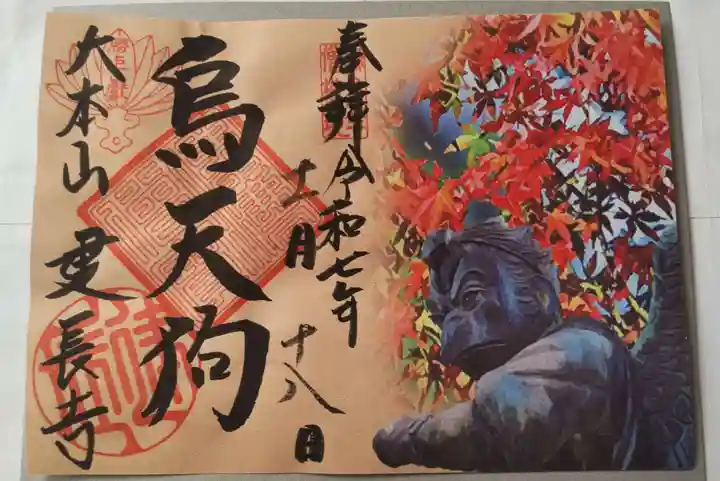 奉拝 令和七年
十一月 十八日
烏天狗
大本山 建長寺